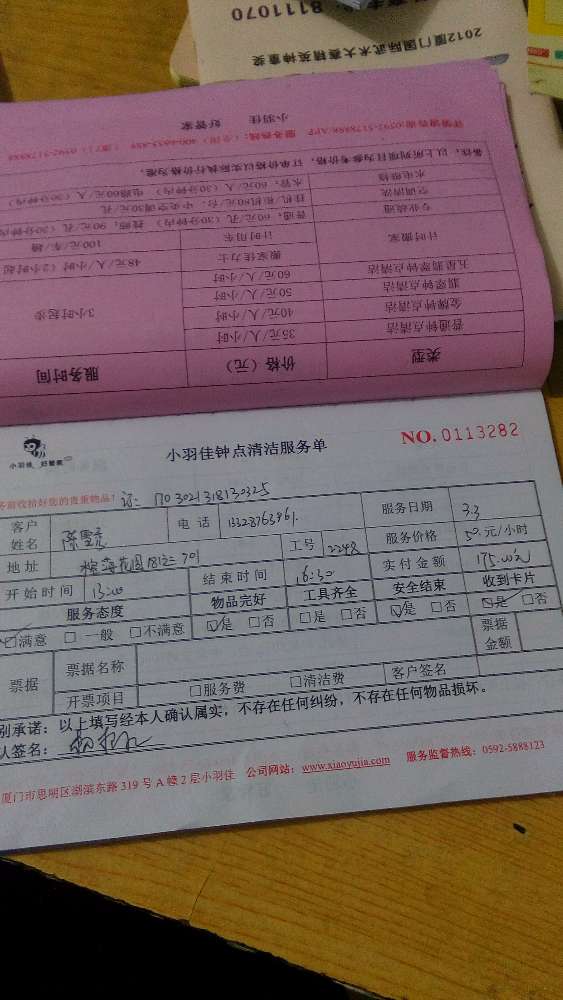 8111070
2012厦门国际武术大赛精英神童奖
小羽佳 好管家
备注：以上所列项目为参考价格，订单价格以实际执行价格为准。
水电维修 水管：60元/人（30分钟内） 电路60元/人（30分钟内）
空调清洗 挂机 柜机80元/台；中央空调30元/孔
专业疏通 普通：60元/孔（30分钟内）
计时搬家 计时用车 100元/车/趟
搬家佳力士 48元/人/小时（2小时起
五星翡翠钟点清洁 60元/人/小时
翡翠钟点清洁 50元/人/小时
金牌钟点清洁 40元/人/小时
普通钟点清洁 35元/人/小时
3小时起步
类型 价格（元） 服务时间
小羽佳 好管家
小羽佳钟点清洁服务单 NO.0113282
收拾好您的贵重物品！
客户姓名 电话 服务日期 3.3
地址 701 工号 2248 服务价格 50元/小时
开始时间 13:00 结束时间 16:30 实付金额 175.00元
服务态度 物品完好 工具齐全 安全结束 收到卡片
☑满意 □一般 □不满意 ☑是 □否 □是 □否 ☑是 □否 ☑是 □否
票据 票据名称 票据金额
开票项目 □服务费 □清洁费 客户签名
别承诺：以上填写经本人确认属实，不存在任何纠纷，不存在任何物品损坏。
人签名：
厦门市思明区湖滨东路319号A幢2层小羽佳 公司网站：www.xiaoyujia.com 服务监督热线：0592-5888123